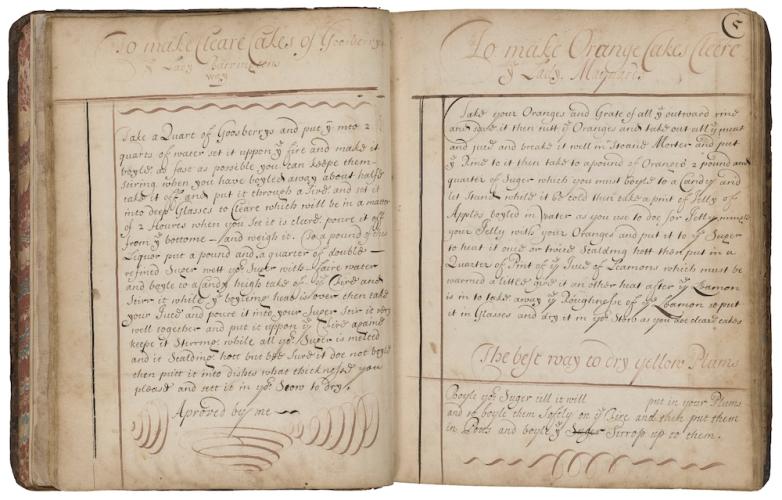 To make Cleare Cakes of Goosberrys
yͤ Lady Barringtons
way
Take a Quart of Goosberrys and put yͤ into 2
quarts of water set it uppon yͤ fire and make it
boyle as fast as possible you can keepe them
stiring when you have boyled away about halfe
take it off and put it through a Sive and set it
into deep Glasses to Cleare which will be in a matter
of 2 Hours when you see it is clere poure it off
from yͤ bottome and weigh it. To a pound of this
Liquor put a pound and a quarter of double
refined Suger wett yͤ Suger with faire water
and boyle to a Candy heigh take of yͤ Fire and
Stirr it while yͤ boyleing heat is over then take
your Juce and poure it into your Suger stir it very
well together and put it uppon yͤ Fire againe
keep it Stirring while all yͤ Suger is melted
and it Scalding hott but bee Sure it doe not boyle
then putt it into dishes what thicknesse you
please and sett it in yͤ Stow to dry
Aproved by me
5
To make Orange Cakes Cleere
yͤ Lady Maynard
Take your Oranges and Grate of all yͤ outward rine
and save it then cutt yͤ Oranges and take out all yͤ meat
and juce and breake it well in Stoane Morter and put
yͤ Rine to it then take to a pound of Oranges 2 pound and
quarter of Suger which you must boyle to a Candy and
let Stand while it be cold then take a pint of Jelly of
Apples boyled in Water as you use to doe for Jelly mingle
your Jelly with your Oranges and put it to yͤ Suger
to heat it once or twice Scalding hott then put in a
Quarter of Pint of yͤ Juce of Leamons which must be
warmed a little give it an other heat after yͤ Leamon
is in to take away yͤ Roughnesse of yͤ Leamon so put
it in Glasses and dry it in yͤ Stove as you doe cleare cakes
The best way to dry yellow Plums
Boyle yͤ Suger till it will put in your Plums
and so boyle them Softly on yͤ Fire and then put them
in Pots and boyle yͤ Suger Sirrop up to them.